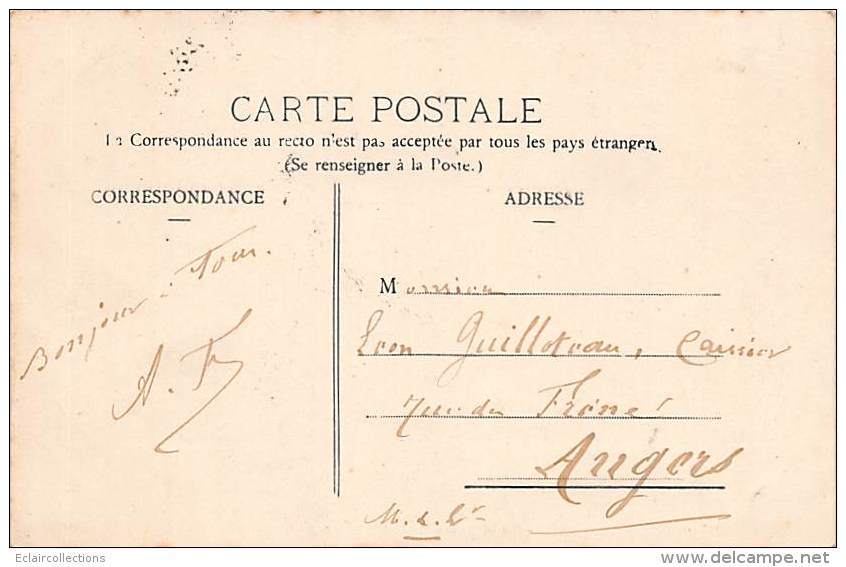 CARTE POSTALE
La Correspondance au recto n'est pas acceptée par tous les pays étrangers
(Se renseigner à la Poste.)
CORRESPONDANCE
ADRESSE
Bonjour à Tous.
A. F.
Monsieur
Leon Guilloteau, Caissier
Rue du Frêne
Angers
M. & L.
Eclaircollections
www.delcampe.net